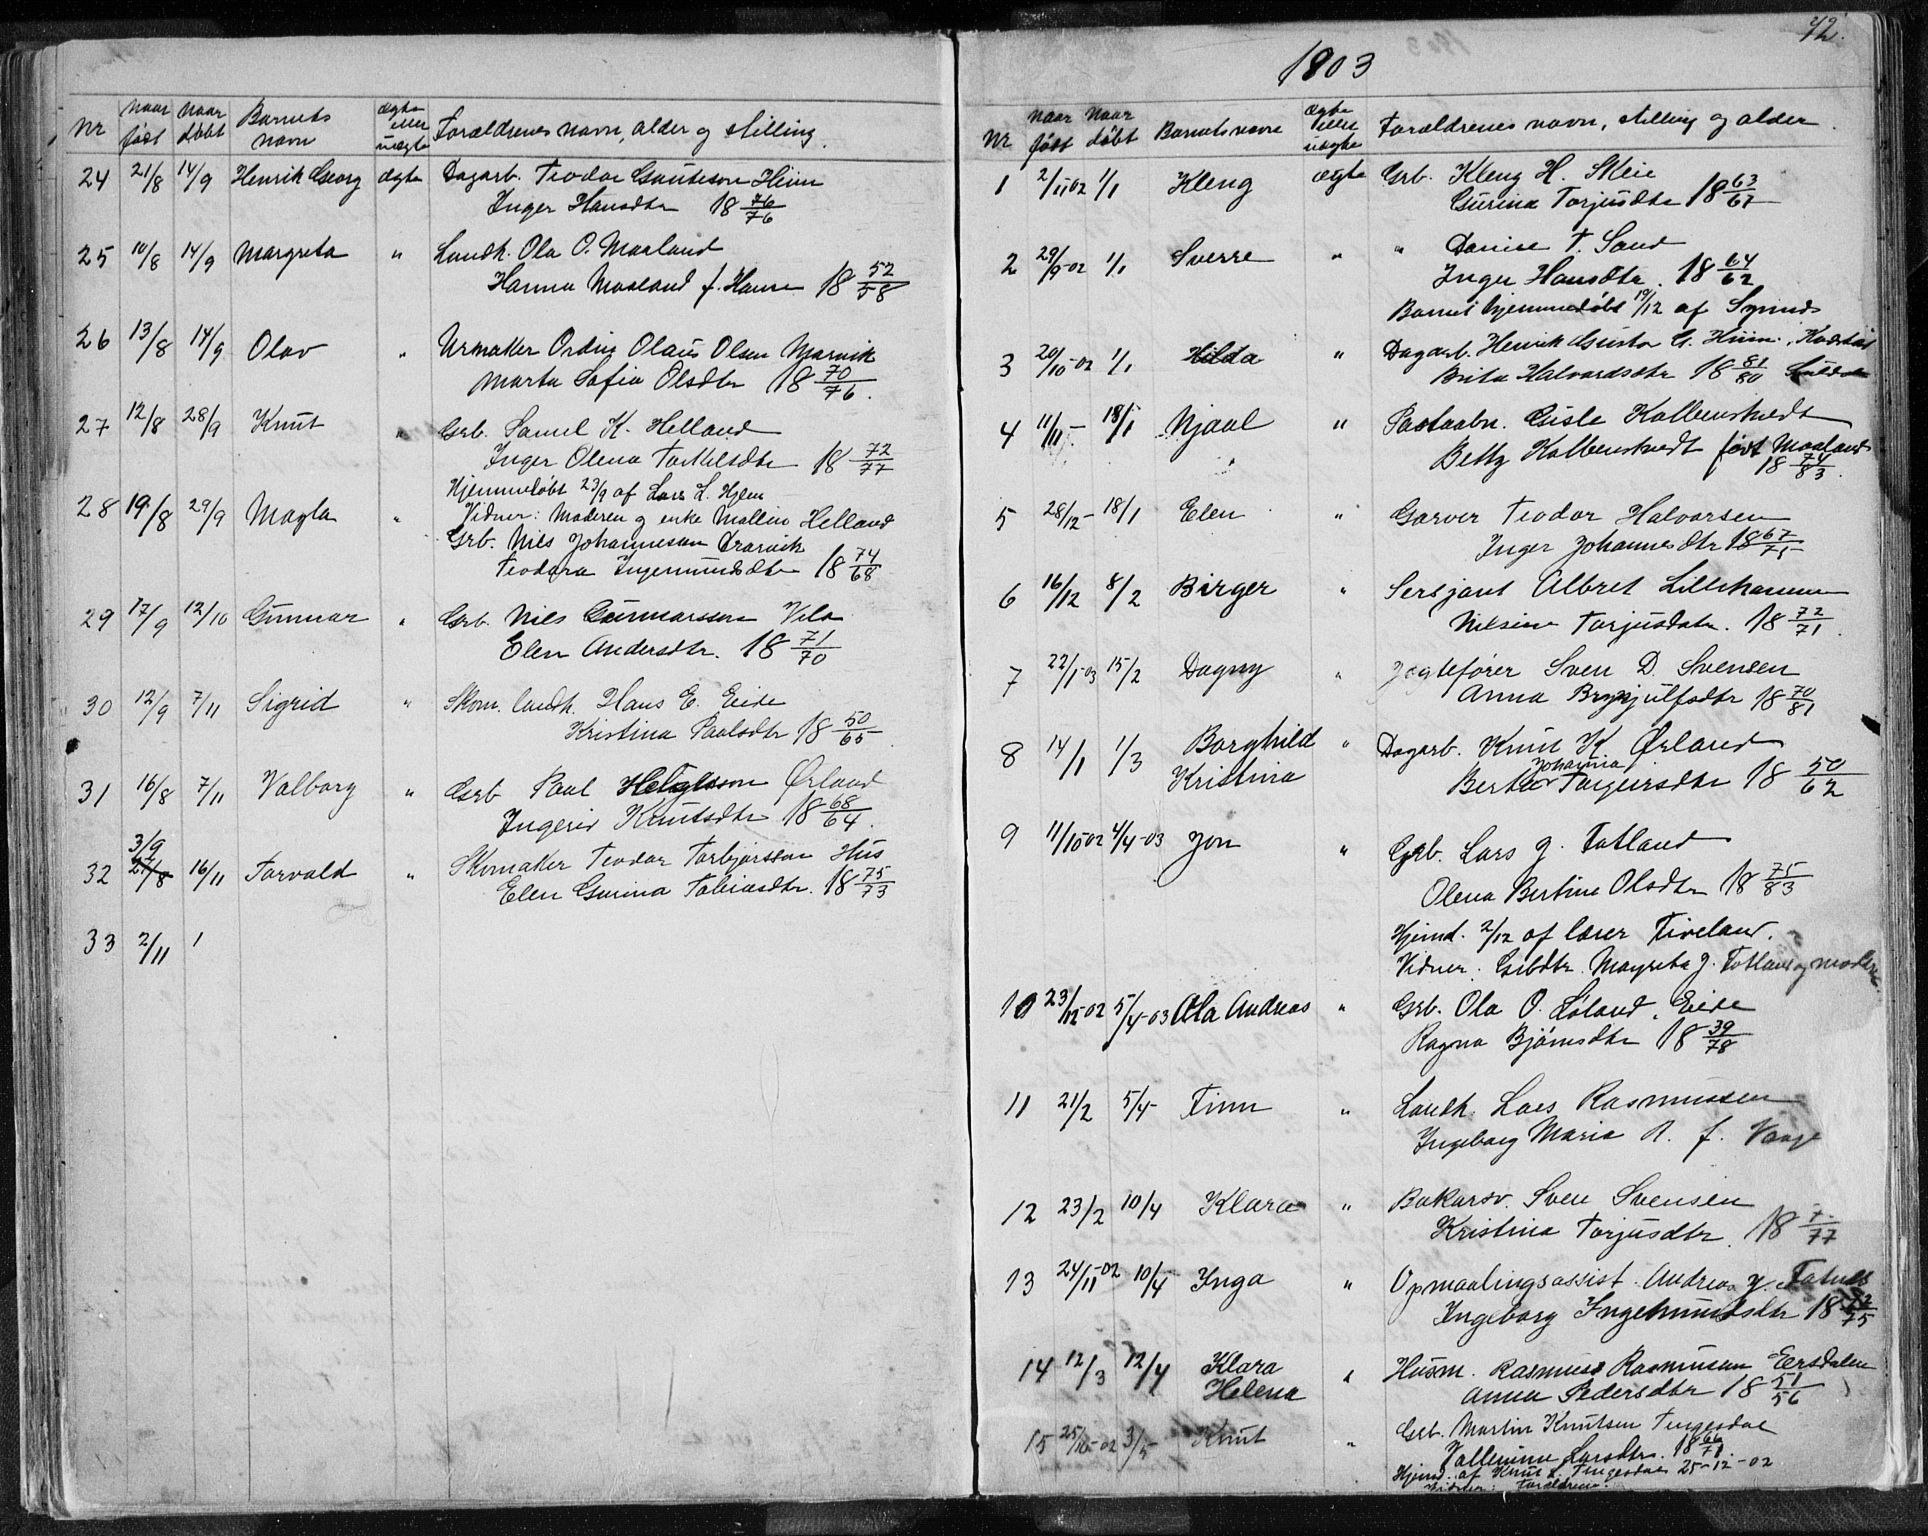 Nr
Naar født
Naar døbt
Barnets navn
ægte eller uægte
Forældrenes navn, alder og stilling.
24 21/8 14/9 Henrik Georg ægte Dagarb. Teodor Gauteson Hiim
Inger Hansdtr 18 76/76
25 10/8 14/9 Margreta " Landh. Ola O. Maaland
Hanna Maaland f. Hansen 18 52/58
26 13/8 14/9 Olav " Urmaker Ordin Olaus Olsen Marvik
Marta Sofia Olsdtr 18 70/76.
27 12/8 28/9 Knut " Grb. Samel K. Helland
Inger Olena Torkelsdtr 18 72/77
Hjemmedøbt 23/9 af Lars L. Hjelm
28 19/8 29/9 Magla " Vidner: Moderen og enke Mallin Helland
Grb. Nils Johannesen Drarvik
Teodora Ingemundsdtr 18 74/68
29 17/9 12/10 Gunnar " Grb. Nils Gunnarsson Vela
Elen Andersdtr. 18 71/70
30 12/9 7/11 Sigrid " Skom. landh. Hans E. Eide
Kristina Paalsdtr 18 50/65
31 16/8 7/11 Valborg " Grb Paul Helgesson Ørland
Ingerid Knutsdtr 18 68/64.
3/9
32 27/8 16/11 Torvald " Skomaker Teodor Torbjørsson Hus
Elen Gurina Tobiasdtr. 18 75/73
33 2/11 1
42.
1903
Nr
Naar født
Naar døbt
Barnets navn
ægte eller uægte
Forældrenes navn, stilling og alder.
1 2/11 02 1/1 Kleng ægte Grb. Kleng H. Skeie
Gurina Torjusdtr 18 63/67
2 29/9-02 1/1 Sverre " " Danise T. Sand
Inger Hansdtr. 18 64/62
Barnet hjemmedøbt 19/12 af
3 20/10-02 1/1 Hilda " Dagarb. Henrik Gustav G. Hiim.
Brita Halvardsdtr 18 81/80 Suldal
4 11/11- 18/1 Njaal " Postaabn. Gisle Kolbenstvedt
Betty Kolbenstvedt født Maaland
18 74/83.
5 28/12- 18/1 Elen " Garver Teodor Halvorsen
Inger Johannesdtr 18 67/75
6 16/12 8/2 Birger " Sersjant Albret Lillehammer
Nilsine Torjusdatr. 18 72/71.
7 22/1-03 15/2 Dagny " Jægtefører Sven D. Svensen
Anna Brynjulfsdtr 18 70/81
8 14/1 1/3 Borghild " Dagarb. Knut K. Ørland
Johanna
Kristina Berta Torgeirsdtr 18 50/62
9 11/10 02 4/4-03 Jon " Grb. Lars J. Fatland
Olena Bertine Olsdtr 18 75/83
Hjemd. 2/12 af lærer Tiveland.
Vidner. Grbdtr. Magreta J. Fatland og moderen
10 23/12-02 5/4-03 Ola Andreas " Grb. Ola O. Løland, Eide
Ragna Bjørnsdtr 18 39/78
11 21/2 5/4- Finn " Landh. Lars Rasmussen
Ingeborg Maria R. f. Vaage
12 23/2 10/4 Klara " Bakersv. Sven Svensen
Kristina Torjusdtr. 18 7/77
13 24/11-02 10/4 Inga " Opmaalingsassist. Andreas J. Fatnes
Ingeborg Ingemundsdtr 18 72/75
14 12/3 12/4 Klara " Husm. Rasmus Rasmusen Eersdalen
Helena Anna Pedersdtr 18 51/56
15 25/10-02 3/5 Knut " Grb. Martin Knutsen Tengesdal
Vallenine Larsdtr. 18 66/71.
Hjemd. af Knut L. Tengesdal 25-12-02
Vidner: Forældrene.